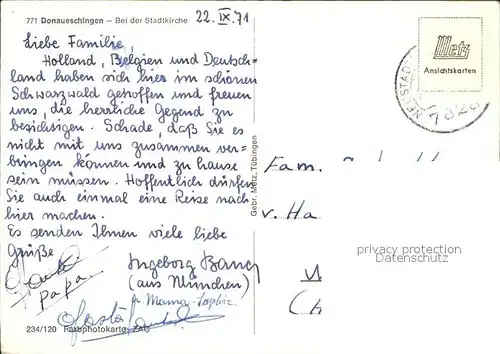 771 Donaueschingen – Bei der Stadtkirche
22. IX. 71
Liebe Familie,
Holland, Belgien und Deutsch-
land haben sich hier im schönen
Schwarzwald getroffen und freuen
uns, die herrliche Gegend zu
besichtigen. Schade, daß Sie es
nicht mit uns zusammen ver-
bringen können und zu hause
sein müssen. Hoffentlich dürfen
Sie auch einmal eine Reise nach
hier machen.
Es senden Ihnen viele liebe
Grüße
Papa.
Ingeborg
(aus München)
Mama
234/120 Farbphotokarte
Gebr. Metz, Tübingen
Metz
Ansichtskarten
Fam.
v. Ha
protected by copyright
ansichtskarten-center